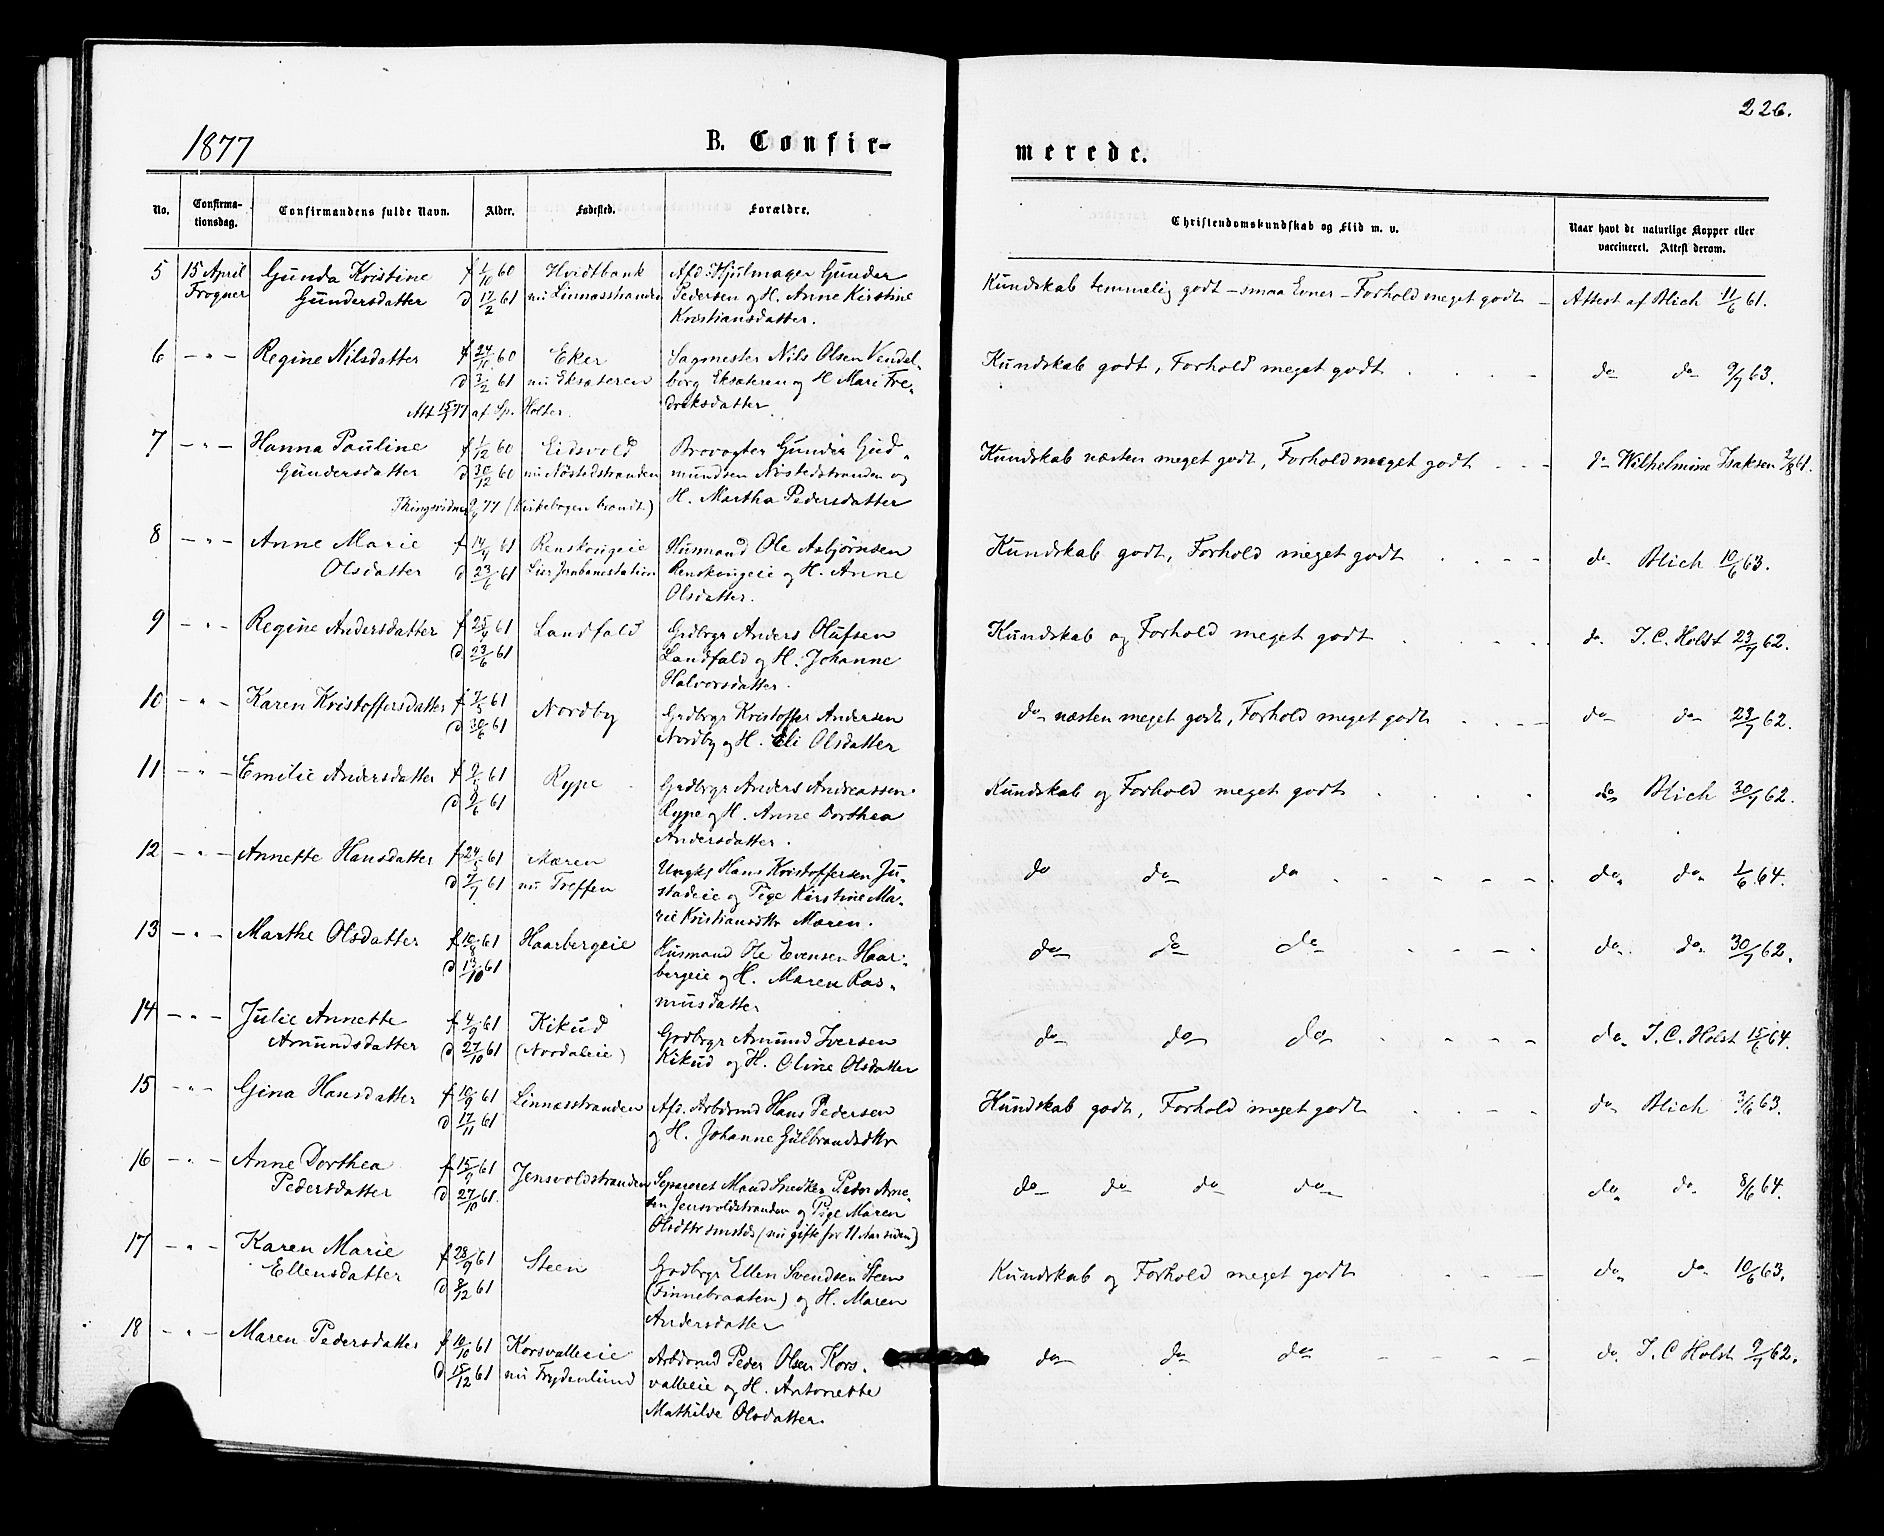 226.
1877
B. Confir-
merede.
No.
Confirma-
tionsdag.
Confirmandens fulde Navn.
Alder.
Fødested.
Forældre.
Christendomskundskab og Flid m. v.
Naar havt de naturlige Kopper eller
vaccineret. Attest derom.
5 15 April Gunda Kristine f 1/10 60 Hvidtbank Afd. Hjulmager Gunder
Frogner Gundersdatter d 17/2 61 nu Linnæsstranden Pedersen og H. Anne Kirstine
Kristiansdatter.
Kundskab temmelig godt – smaa Evner – Forhold meget godt – Attest af Blich 11/6 61.
6 – " – Regine Nilsdatter f 24/11 60 Eker Sagmester Nils Olsen Vendel-
d 3/2 61 nu Eksæteren borg Eksæteren og H. Mari Fre-
Att 15/4 77 af Sp. Holter. driksdatter
Kundskab godt, Forhold meget godt do do 9/7 63.
7 – " – Hanna Pauline f 1/12 60 Eidsvold Brovogter Gunder Gud-
Gundersdatter d 30/12 60 nu Nøstedstranden mundsen Nøstedstranden og
Thingsvidne 9/4 77 (Kirkebogen brændt.) H. Martha Pedersdatter
Kundskab næsten meget godt, Forhold meget godt do Wilhelmine Isaksen 2/8 61.
8 – " – Anne Marie f 14/4 61 Renskougeie Husmand Ole Asbjørnsen
Olsdatter d 23/6 61 Lier Jernbanestation Renskougeie og H. Anne
Olsdatter.
Kundskab godt, Forhold meget godt do Blich 10/6 63.
9 – " – Regine Andersdatter f 25/4 61 Landfald Grdbrgr Anders Olufsen
d 23/6 61 Landfald og H. Johanne
Halvorsdatter.
Kundskab og Forhold meget godt do. J. C. Holst 23/7 62.
10 – " – Karen Kristoffersdatter f 7/5 61 Nordby Grdbrgr Kristoffer Andersen
d 30/6 61 Nordby og H. Eli Olsdatter
do næsten meget godt, Forhold meget godt do do 23/7 62.
11 – " – Emilie Andersdatter f 9/5 61 Rype Grdbrgr Anders Andreassen
d 9/6 61 Rype og H. Anne Dorthea
Andersdatter.
Kundskab og Forhold meget godt do Blich 30/7 62.
12 – " – Annette Hansdatter f 24/5 61 Mæren Ungk. Hans Kristoffersen Ju-
d 7/7 61 nu Treffen stadeie og Pige Kirstine Ma-
rie Kristiansdtr Mæren.
do do do do do 1/6 64.
13 – " – Marthe Olsdatter f 10/8 61 Haarbergeie Husmand Ole Evensen Haar-
d 13/10 61 bergeie og H. Maren Ras-
musdatter
do do do do do 30/7 62.
14 – " – Julie Annette f 4/9 61 Kikud Grdbrgr Amund Iversen
Amundsdatter d 27/10 61 (Nordaleie) Kikud og H. Oline Olsdatter
do do do do J. C. Holst 15/6 64.
15 – " – Gina Hansdatter f 10/9 61 Linnæsstranden Afd. Arbdmd Hans Pedersen
d 17/11 61 og H. Johanne Gulbrandsdtr
Kundskab godt, Forhold meget godt do Blich 3/6 63.
16 – " – Anne Dorthea f 15/9 61 Jensvoldstranden Separeret Mand Snedker Peder Arne-
Pedersdatter d 27/10 61. sen Jensvoldstranden og Pige Maren
Olsdtr smstds (nu gifte for 11 Aar siden)
do do do do do do 8/6 64.
17 – " – Karen Marie f 28/9 61 Steen Grdbrgr Ellen Svendsen Steen
Ellensdatter d 8/12 61 (Finnebraaten) og H. Maren
Andersdatter
Kundskab og Forhold meget godt do do 10/6 63.
18 – " – Maren Pedersdatter f 10/10 61 Korsvalleeie Arbdmd Peder Olsen Kors-
d 15/12 61 nu Frydenlund valleeie og H. Antonette
Mathilde Olsdatter.
do do do do. J. C Holst 9/7 62.